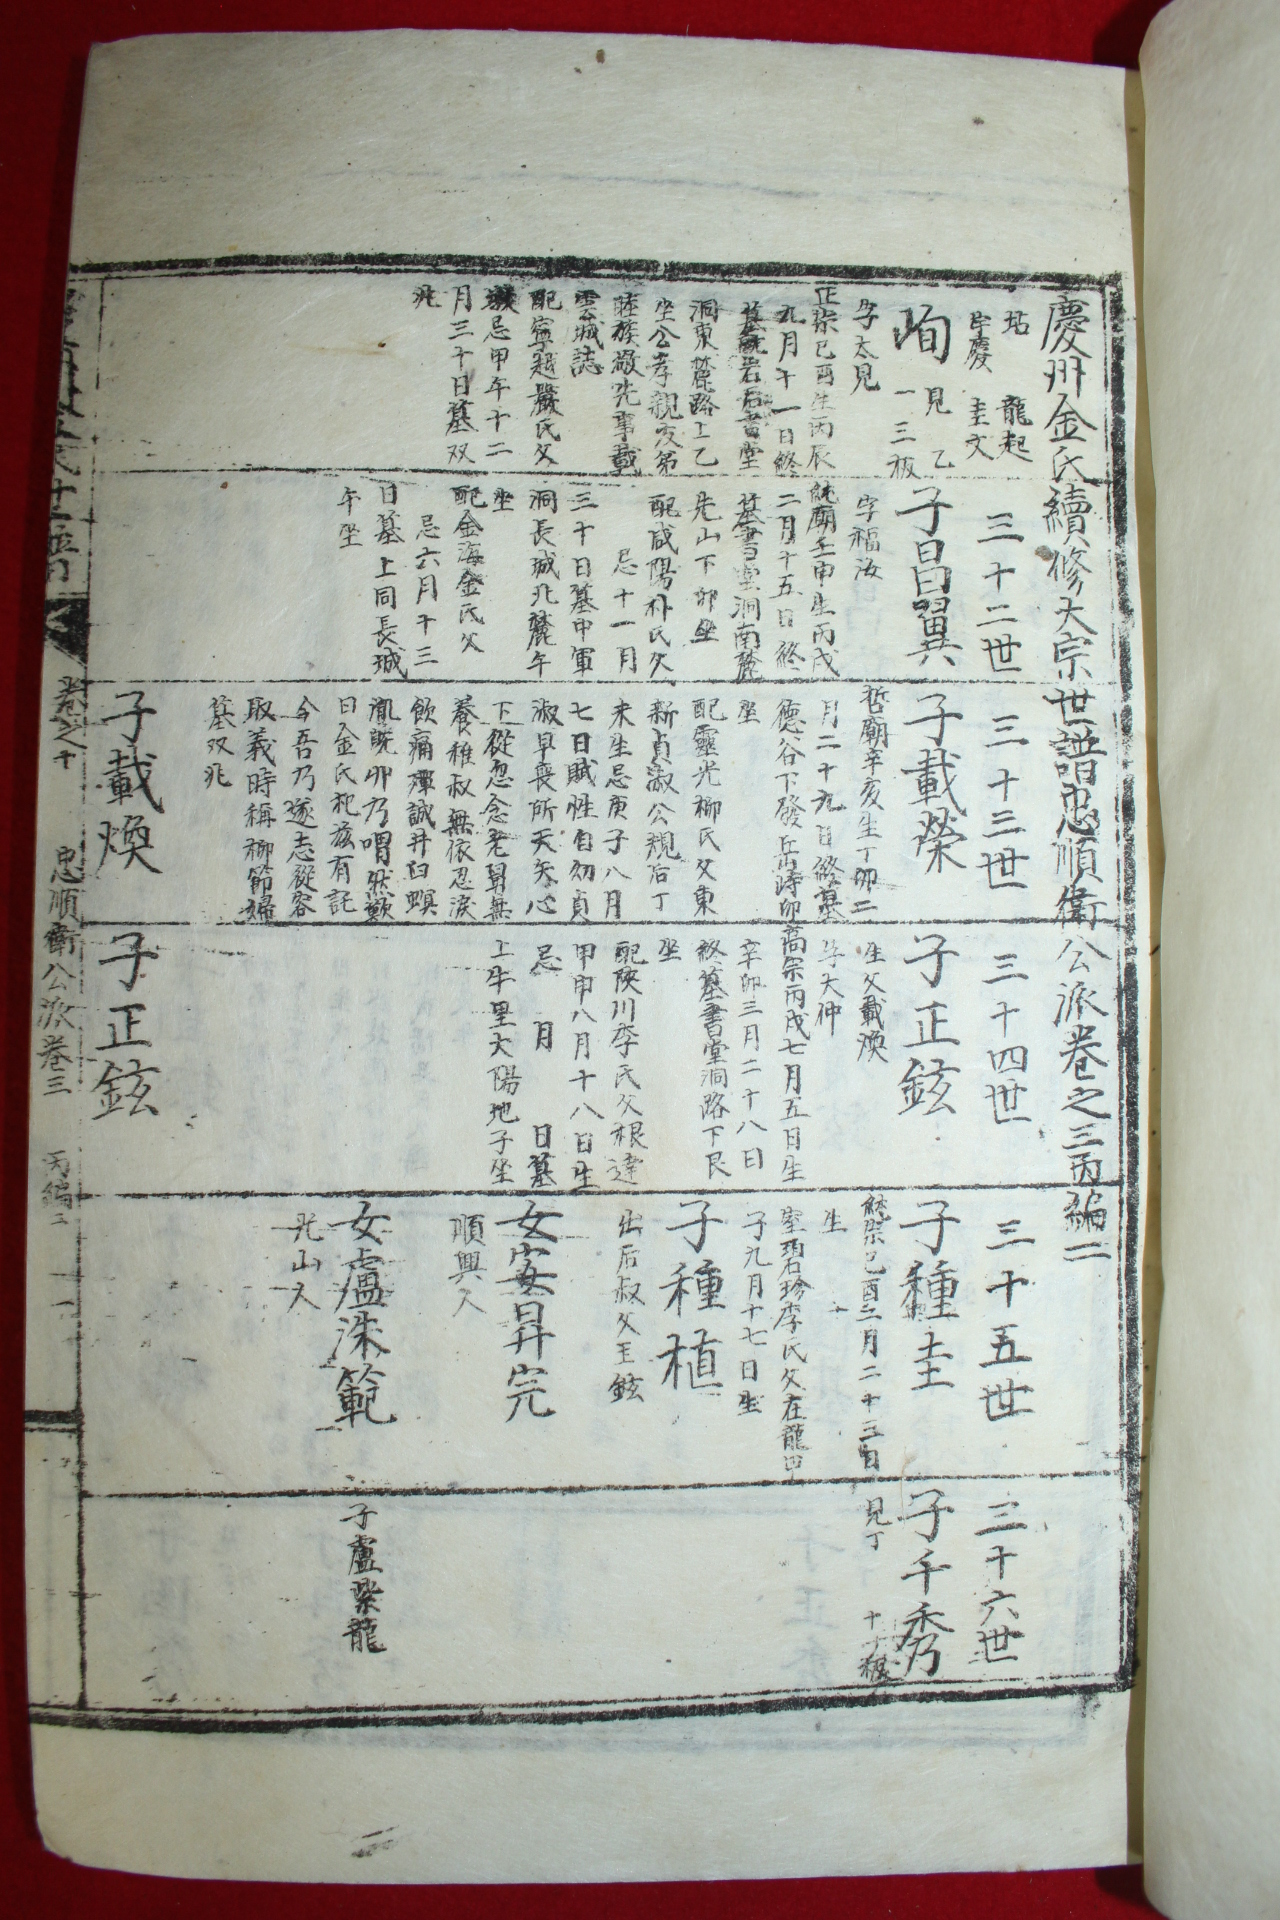 慶州金氏續修大宗世譜忠順衛公派卷之三丙編二
龍起
圭文
峋
見乙
一三板
字太見
正宗己酉生丙辰
九月十一日終
洞東麓路上乙
坐公孝親友弟
睦族敬先事載
雲城誌
配寧越嚴氏父
忌甲午十二
月三十日墓双
兆
三十二世
子昌翼
字福汝
純廟壬申生丙戌
二月十五日終
墓書堂洞南麓
先山下卯坐
配咸陽朴氏父
忌十一月
三十日墓中軍
洞長城北麓午
坐
配金海金氏父
忌六月十三
日墓上同長城
午坐
三十三世
子載榮
哲廟辛亥生丁卯二
月二十九日終墓
德谷下發岳峙卯
坐
配靈光柳氏父東
新貞淑公規后丁
未生忌庚子八月
七日賦性自幼貞
淑早喪所天矢心
下從忽念老舅無
養稚叔無依忍淚
飲痛殫誠井臼螟
嗣旣卯乃喟然歎
日金氏祀玆有託
今吾乃遂志從容
取義時稱柳節婦
墓双兆
子載煥
三十四世
子正鉉
生父載煥
字大仲
高宗丙戌七月五日生
辛卯三月二十八日
終墓書堂洞路下艮
坐
配陜川李氏父根達
甲申八月十八日生
忌 月 日墓
上牛里大陽地子坐
子正鉉
三十五世
子種圭
純宗己酉二月二十三日
生
室碧珍李氏父在龍甲
子九月十七日生
子種植
出后叔父玉鉉
女安昇完
順興人
女盧洙範
光山人
三十六世
子千秀
見丁
十十板
子盧榮龍
卷之十 忠順衛公派卷三 丙編二